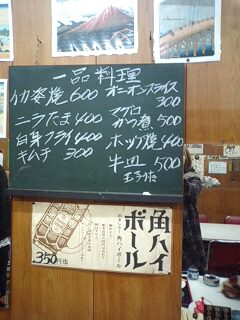 一品料理
イカ姿焼 600
ニラたま 400
白身フライ 400
キムチ 300
オニオンスライス
300
マグロ
かつ煮 500
ホッケ焼 400
牛皿 500
玉子付
角ハイ
ボール
350円也